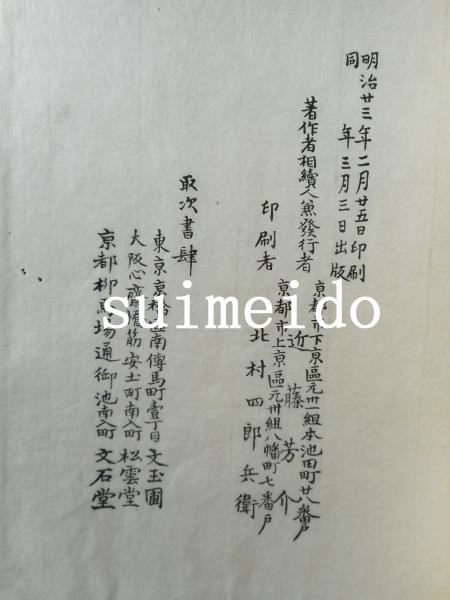 明治廿三年二月廿五日印刷
同年三月三日出版
京都市下京區元卅一組本池田町廿八番戶
著作者相續人兼發行者 近藤芳介
京都市上京區元卅組八幡町七番戶
印刷者 北村四郎兵衛
取次書肆
東京京橋區南傳馬町壹丁目 文玉圃
大阪心齋橋筋安土町南入町 松雲堂
京都柳馬場通御池南入町 文石堂
suimeido